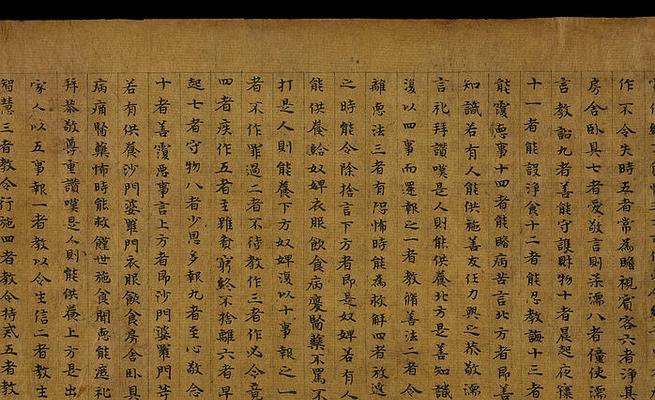 作不令失時五者常為瞻視賓客六者淨其
房舍臥具七者愛敬言則柔濡八者僮使濡
言教詔九者善能守護財物十者晨起夜寐
十一者能設淨食十二者能忍教誨十三者
能覆惡事十四者能瞻病苦言北方者即善
知識若有人能供施善友任力與之恭敬濡
言礼拜讚嘆是人則能供養北方是善知識
復以四事而還報之一者教脩善法二者令
離惡法三者有恐怖時能為救解四者放逸
之時能令除捨言下方者即是奴婢若有人
能供養給奴婢衣服飲食病瘦醫藥不罵不
打是人則能養下方奴婢復以十事報之一
者不作罪過二者不待教作三者作必令竟
四者疾作五者主雖貧窮終不捨離六者早
起七者守物八者少恩多報九者至心敬念
十者善覆惡事言上方者即沙門婆羅門等
若有供養沙門婆羅門衣服飲食房舍臥具
病痛醫藥怖時能救饉世施食聞惡能遮礼
拜恭敬尊重讚嘆是人則能供養上方是出
家人以五事報一者教以令生信二者教生
智慧三者教令行施四者教令持戒五者教